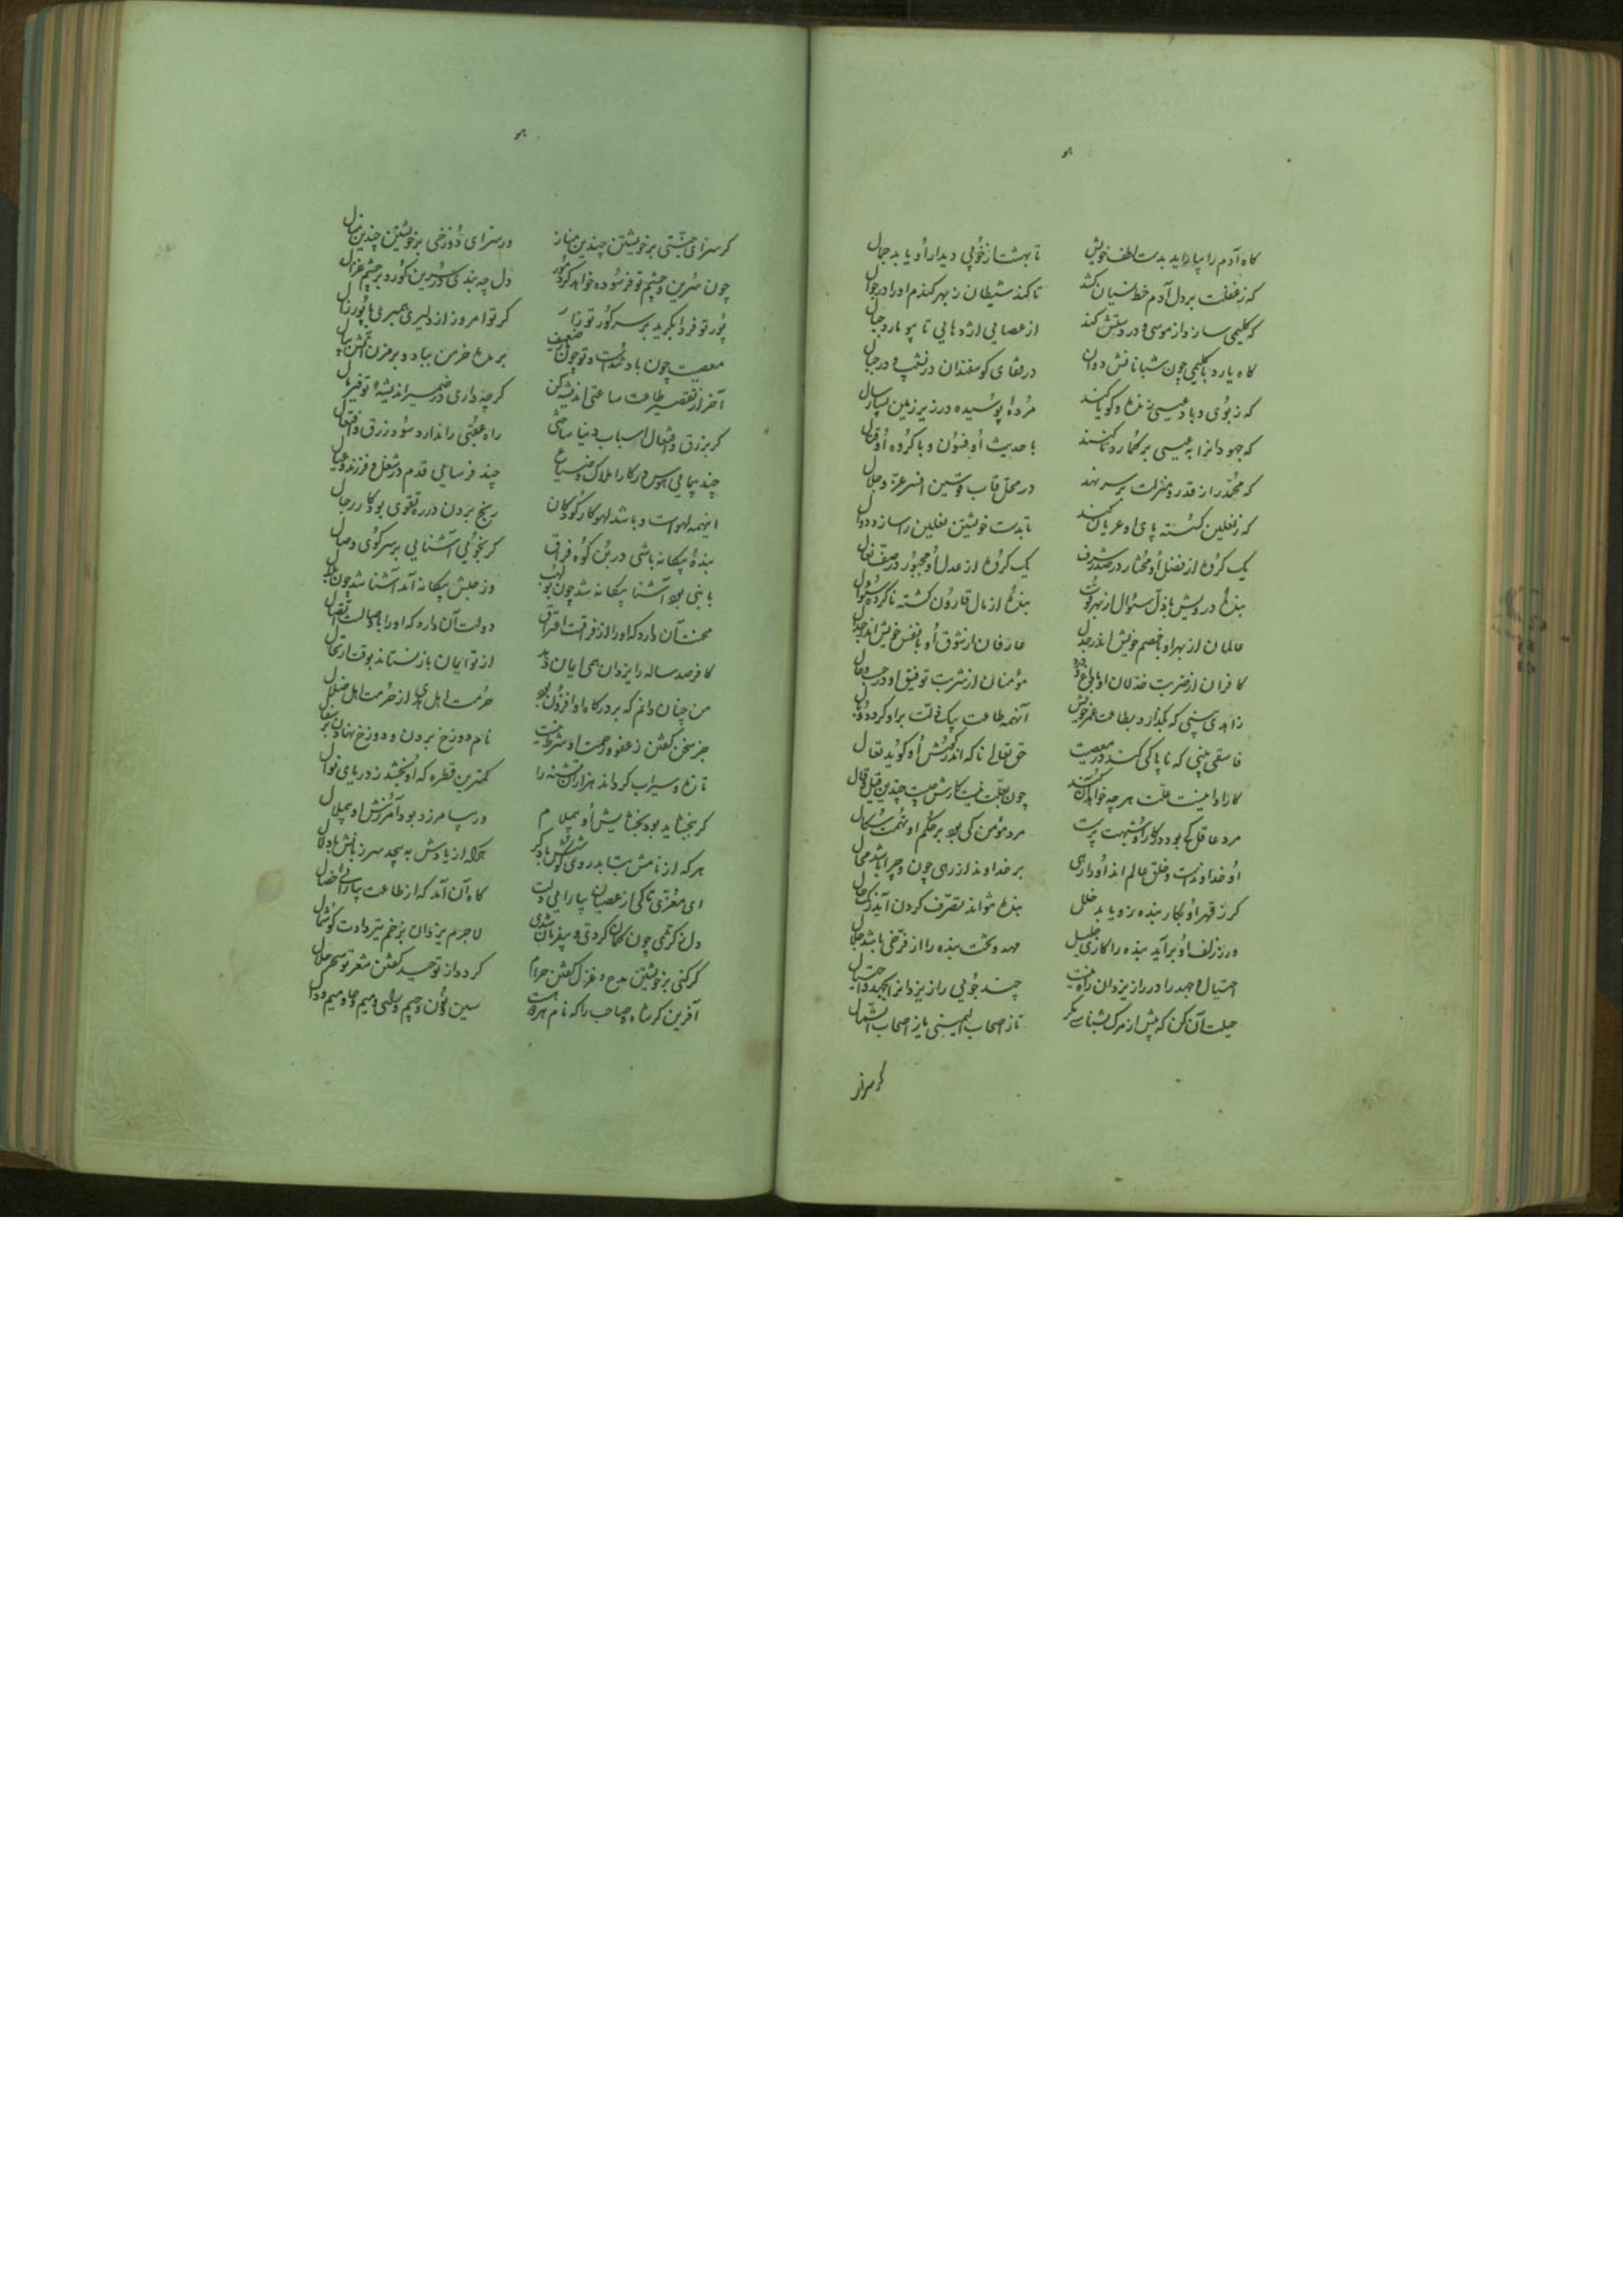 گاه آدم را بیاراید بدست لطف خویش تا بهشت از خوبی دیدار او یابد جمال
که ز غفلت بر دل آدم خط نسیان کشد تا کند شیطان ز بهر گندم او را در جوال
که کلیمی سازد از موسی و در دستش کند از عصایی اژدهایی تا
گاه باز با کلیمی چون شبانانش دوان در قفای کوسفندان در نشیب و در جبال
که ز بوی و باد عیسی زنده و کویا کند مردهٔ پوسیده در زیر زمین بسیار سال
که جهودانرا به عیسی بر کمارد تا کنند با حدیث او فسون و با کروه او قتال
که محمد را ز قدر و منزلت بر سر نهد در محل قاب قوسین افسر عز و جلال
که ز نعلین کسسته پای او عریان کند تا بدست خویشتن نعلین را سازد دوال
یک کروه از فضل او مختار در صدر شرف یک کروه از عدل او مجبور در صف نعال
بندهٔ درویش با ذل سئوال از بهر قوت بندهٔ از مال قارون کشته ناکرده سئوال
عالمان از بهر او با خصم خویش اندر جدل عارفان از شوق او با نفس خویش اندر جدال
کافران از ضربت خذلان او با مؤمنان از شربت توفیق او در حسب حال
زاهدی بینی که بگذارد بطاعت عمر خویش آنهمه طاعت بیک زلت بر او کردد وبال
فاسقی بینی که ناپاکی کند در معصیت حق تعالی ناکه اندر کوشش او کوید تعال
کار او را نیست علت هر چه خواهد آن کند چون بعلت نیست کارش چیست چندین قیل و قال
مرد عاقل کی بود در کار او شبهت پرست مرد مؤمن کی بود بر حکم او تهمت سکال
او خداوند است و خلق عالم اند او را رهی بر خداوند از رهی چون و چرا باشد محال
کر ز قهر او بکار بنده ره یابد خلل بنده نتواند تصرف کردن آید
ور ز لطف او برآید بنده را کاری جلیل مهد و تخت بنده را از فرخی باشد جلال
احتیال و جهد را در راز یزدان راه نیست چند جویی راز یزدانرا بجهد و احتیال
حیلت آن کن که پیش از مرک بشناسی مکر تا ز اصحاب الیمینی یا ز اصحاب الشمال
کر سزای
کر سزای جنتی بر خویشتن چندین مناز ور سزای دوزخی بر خویشتن چندین منال
چون سرین و چشم تو فرسوده خواهد کرد کور دل چه بندی در سرین کور و بر چشم غزال
پور تو فردا بکرید بر سر کور تو زار کر تو امروز از دلیری همبری با پور زال
معصیت چون باد تند است و تو چون ضعیف بر مده خرمن بباد و بر مزن آتش ببال
آخر از تقصیر طاعت ساعتی اندیشه کن کر چه داری در ضمیر اندیشهٔ توفیر مال
کر بزرق و افتعال اسباب دنیا ساختی راه عقبی را ندارد سود زرق و افتعال
چند پیمایی هوس در کار املاک و ضیاع چند فرسایی قدم در شغل فرزند و عیال
اینهمه لهو است و باشد لهو کار کودکان رنج بردن در ره تقوی بود کار رجال
بندهٔ بیکانه باشی در بن کوه فراق کر نجویی آشنایی بر سر کوی وصال
با نبی بود آشنا بیکانه شد چون بولهب وز حبش بیکانه آمد آشنا شد چون بلال
محنت آن دارد که او را از فرقت افتراق دولت آن دارد که او را با وصالت اتصال
کافر صد ساله را یزدان همی ایمان دهد از تو ایمان باز نستاند بوقت ارتحال
من چنان دانم که بر درکاه او افزون بود حرمت اهل هدی از حرمت اهل ضلال
جز سخن کفتن ز عفو و رحمت او شرط نیست نام دوزخ بردن و دوزخ نهادن بر
تازه و سیراب کرداند هزاران تشنه را کمترین قطره که او بخشد ز دریای نوال
کر ببخشاید بود بخشایش او بیملام ور بیامرزد بود آمرزش او بیملال
هر که از نامش بتابد روی کوشش باد کر هر که از یادش بپیچد سر زبانش باد لال
ای معزی تا کی از عصیان بیارایی دلت گاه آن آمد که از طاعت بیارایی خصال
دل بکژی چون کمان کردی و بیفرمان شدی لاجرم یزدان بزخم تیر دادت کوشمال
کر کنی بر خویشتن مدح و غزل کفتن حرام کردد از توحید کفتن شعر تو سحر حلال
آفرین کر شاه و صاحب را که نام هر دو هست سین و نون و جیم و ری و میم و حا و میم و دال